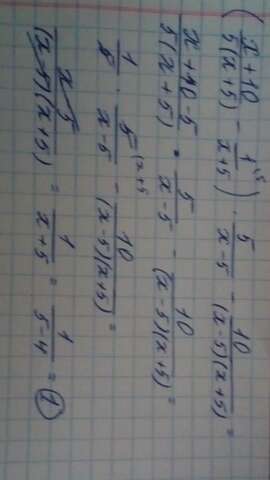 ( (x+10)/(5(x+5)) - 1^{\5}/(x+5) ) · 5/(x-5) - 10/((x-5)(x+5)) =
(x+10-5)/(5(x+5)) · 5/(x-5) - 10/((x-5)(x+5)) =
1/5 · 5^{\x+5}/(x-5) - 10/((x-5)(x+5)) =
(x-5)/((x-5)(x+5)) = 1/(x+5) = 1/(5-4) = 1